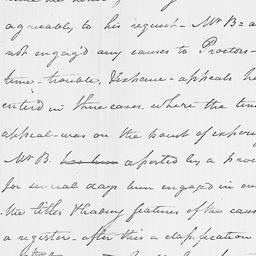 agreeably to his request - Mr B = a
not engag'd any causes to Proctors -
time - trouble, & expence - appeals he
enter'd in three cases, where the time
appeal - was on the point of expiring
Mr B. has been assisted by a proc
for several days been engaged in en
the titles & leading features of the caus
a register - after this a classification